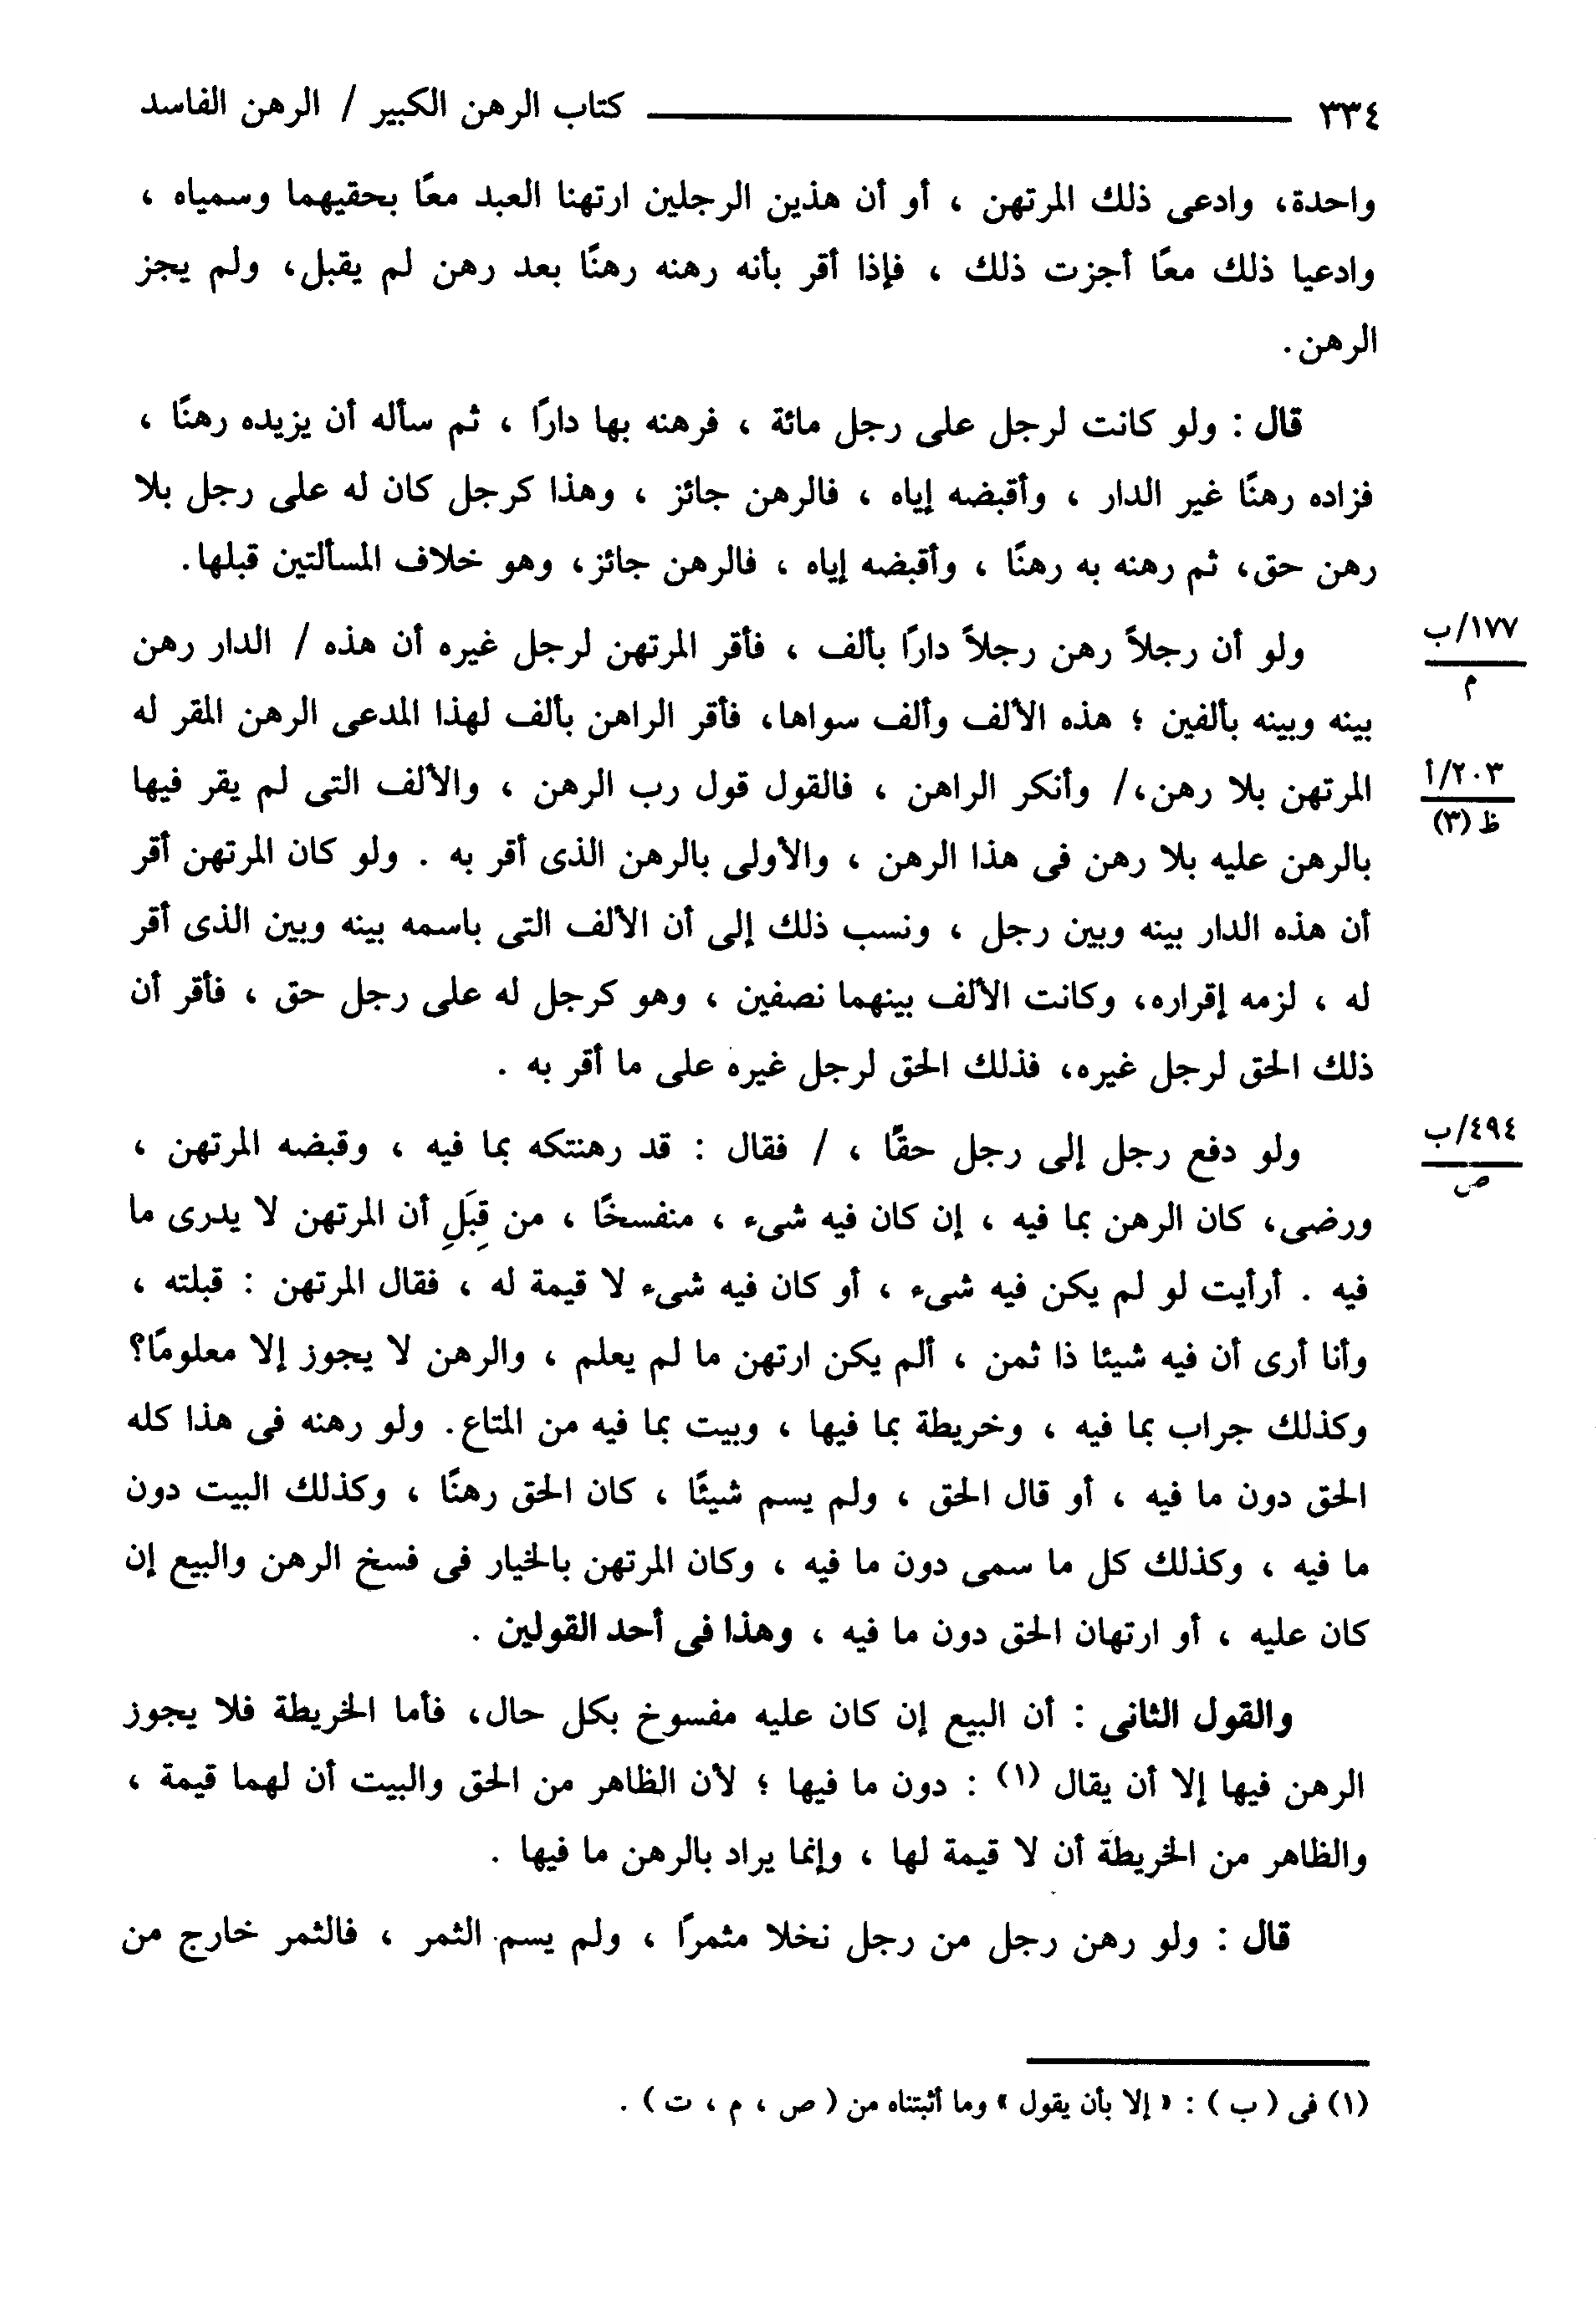 ٣٣٤ ــــــــــ كتاب الرهن الكبير / الرهن الفاسد
واحدة، وادعى ذلك المرتهن ، أو أن هذين الرجلين ارتهنا العبد معًا بحقيهما وسمياه ،
وادعيا ذلك معًا أجزت ذلك ، فإذا أقر بأنه رهنه رهنًا بعد رهن لم يقبل، ولم يجز
الرهن.
قال : ولو كانت لرجل على رجل مائة ، فرهنه بها دارًا ، ثم سأله أن يزيده رهنًا ،
فزاده رهنًا غير الدار ، وأقبضه إياه ، فالرهن جائز ، وهذا كرجل كان له على رجل بلا
رهن حق، ثم رهنه به رهنًا ، وأقبضه إياه ، فالرهن جائز، وهو خلاف المسألتين قبلها.
١٧٧/ب
م
ولو أن رجلاً رهن رجلاً دارًا بألف ، فأقر المرتهن لرجل غيره أن هذه / الدار رهن
بينه وبينه بألفين ؛ هذه الألف وألف سواها، فأقر الراهن بألف لهذا المدعى الرهن المقر له
٢٠٣/أ
ظ (٣)
المرتهن بلا رهن،/ وأنكر الراهن ، فالقول قول رب الرهن ، والألف التى لم يقر فيها
بالرهن عليه بلا رهن فى هذا الرهن ، والأولى بالرهن الذى أقر به . ولو كان المرتهن أقر
أن هذه الدار بينه وبين رجل ، ونسب ذلك إلى أن الألف التى باسمه بينه وبين الذى أقر
له ، لزمه إقراره، وكانت الألف بينهما نصفين ، وهو كرجل له على رجل حق ، فأقر أن
ذلك الحق لرجل غيره، فذلك الحق لرجل غيره على ما أقر به .
٤٩٤/ب
ص
ولو دفع رجل إلى رجل حقًا ، / فقال : قد رهنتكه بما فيه ، وقبضه المرتهن ،
ورضى، كان الرهن بما فيه ، إن كان فيه شىء ، منفسخًا ، من قِبَلِ أن المرتهن لا يدرى ما
فيه . أرأيت لو لم يكن فيه شىء ، أو كان فيه شىء لا قيمة له ، فقال المرتهن : قبلته ،
وأنا أرى أن فيه شيئا ذا ثمن ، ألم يكن ارتهن ما لم يعلم ، والرهن لا يجوز إلا معلومًا؟
وكذلك جراب بما فيه ، وخريطة بما فيها ، وبيت بما فيه من المتاع. ولو رهنه فى هذا كله
الحق دون ما فيه ، أو قال الحق ، ولم يسم شيئًا ، كان الحق رهنًا ، وكذلك البيت دون
ما فيه ، وكذلك كل ما سمى دون ما فيه ، وكان المرتهن بالخيار فى فسخ الرهن والبيع إن
كان عليه ، أو ارتهان الحق دون ما فيه ، وهذا فى أحد القولين .
والقول الثانى : أن البيع إن كان عليه مفسوخ بكل حال، فأما الخريطة فلا يجوز
الرهن فيها إلا أن يقال (١) : دون ما فيها ؛ لأن الظاهر من الحق والبيت أن لهما قيمة ،
والظاهر من الخريطة أن لا قيمة لها ، وإنما يراد بالرهن ما فيها .
قال : ولو رهن رجل من رجل نخلا مثمرًا ، ولم يسم الثمر ، فالثمر خارج من
(١) فى ( ب ) : « إلا بأن يقول » وما أثبتناه من ( ص ، م ، ت ) .